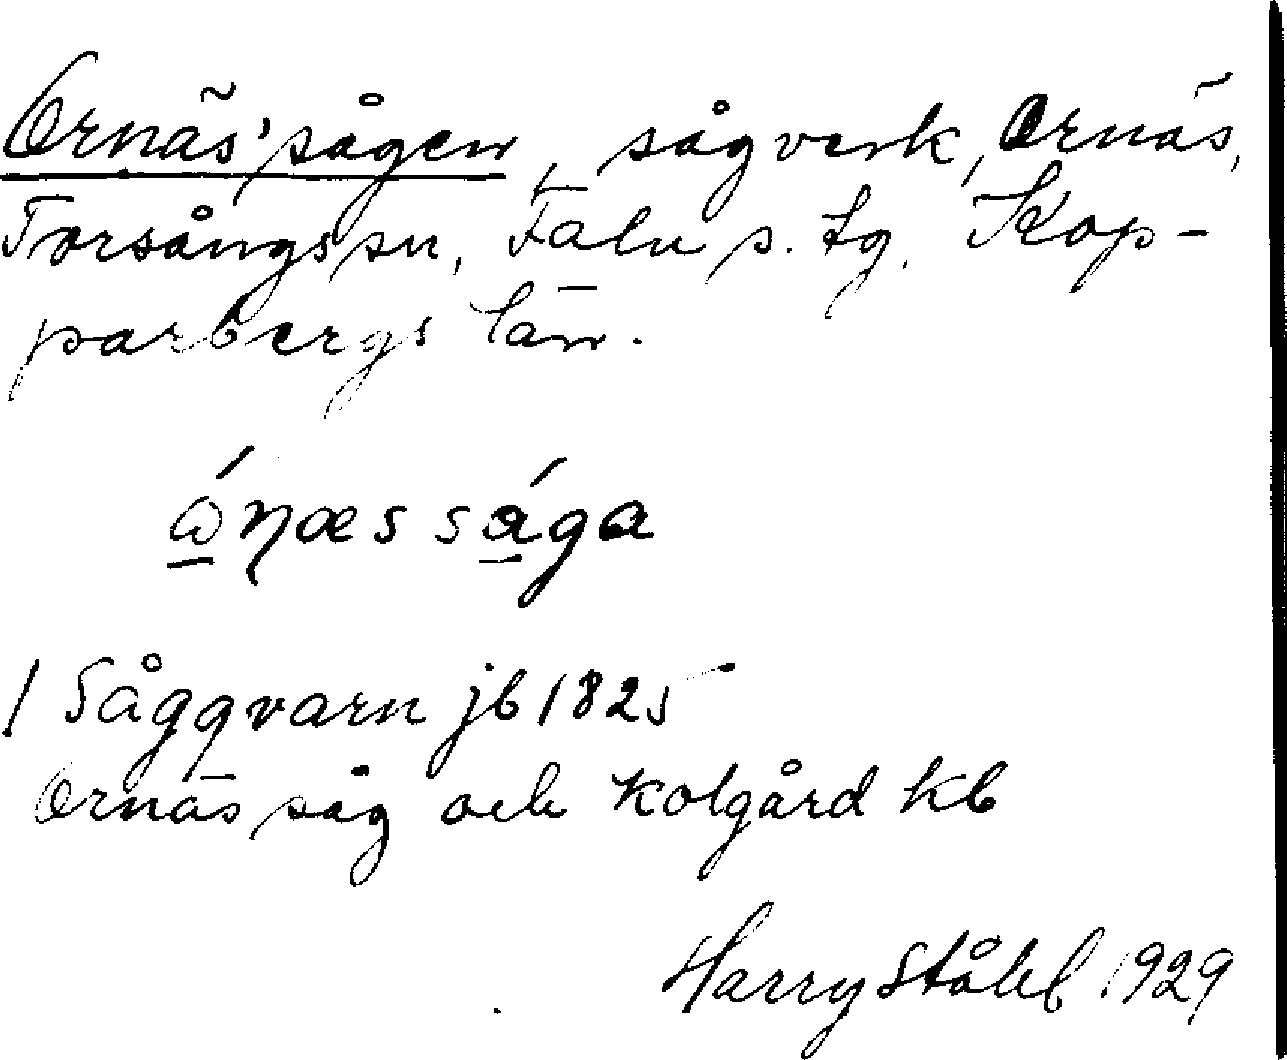 Ornässågen, sågverk, Ornäs,
Torsångs sn, Falu s. tg. Kop-
parbergs län.
ǫ́ṇæssága
/ Sågqvarn jb 1825
Ornäs såg och Kolgård kb
Harry Ståhl 1929